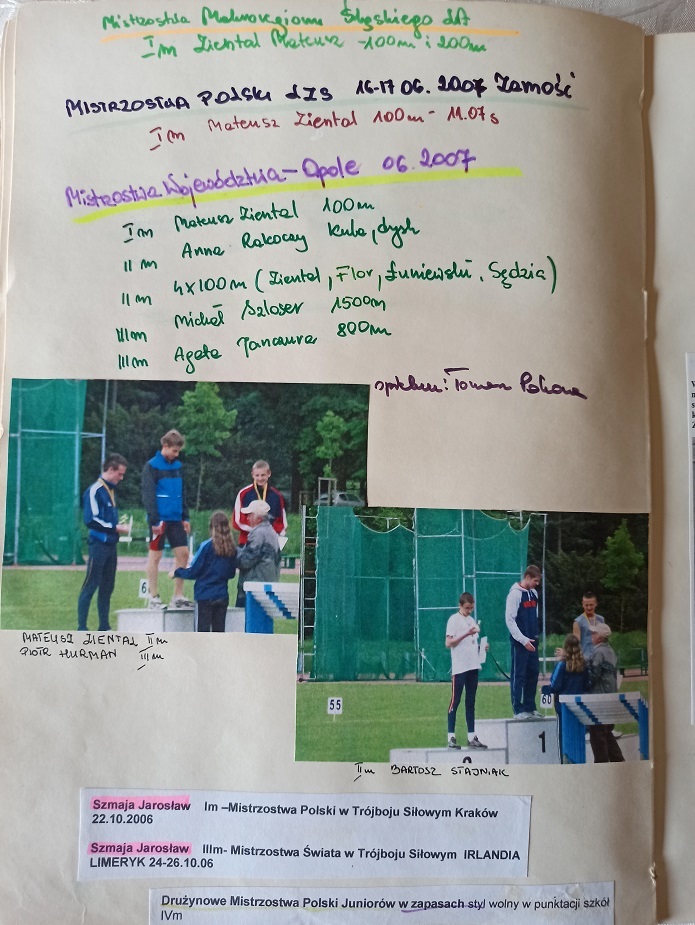 Mistrostwa Makroregionu Śląskiego LA
I m Ziental Mateusz - 100m i 200m
MISTRZOSTWA POLSKI LZS 16-17 06. 2007 Zamość
I m Mateusz Ziental 100m - 11.07s
Mistrzostwa Województwa - Opole 06. 2007
I m Mateusz Ziental 100m
II m Anna Rakoczy kula, dysk
II m 4x100m (Ziental, Flor, Łuniewski, Sędzia)
III m Michał Szloser 1500m
III m Agata 800m
opiekun: Tomasz
6
MATEUSZ ZIENTAL II m
PIOTR HURMAN III m
55
60
1
2
II m BARTOSZ STAJNIAK
Szmaja Jarosław Im –Mistrzostwa Polski w Trójboju Siłowym Kraków
22.10.2006
Szmaja Jarosław IIIm- Mistrzostwa Świata w Trójboju Siłowym IRLANDIA
LIMERYK 24-26.10.06
Drużynowe Mistrzostwa Polski Juniorów w zapasach styl wolny w punktacji szkół
IVm